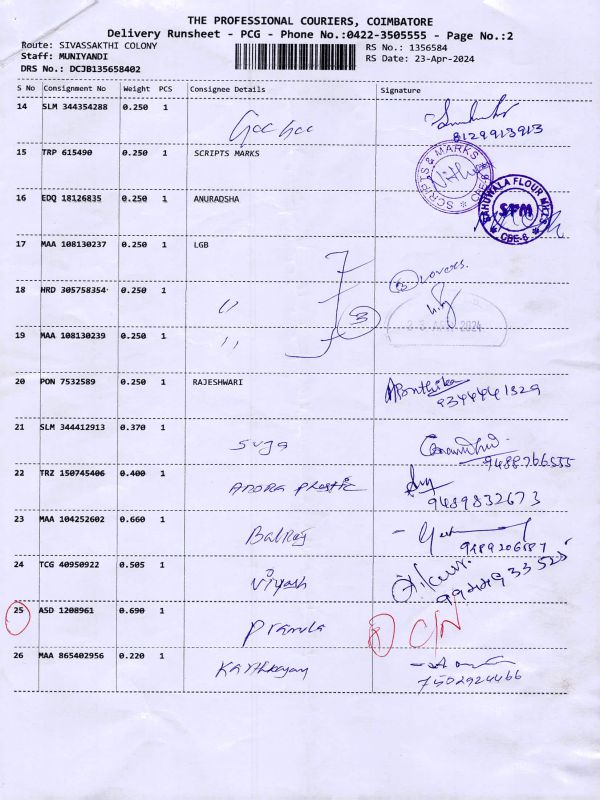 THE PROFESSIONAL COURIERS, COIMBATORE
Delivery Runsheet - PCG - Phone No.:0422-3505555 - Page No.:2
Route: SIVASSAKTHI COLONY
RS No.: 1356584
Staff: MUNIYANDI
RS Date: 23-Apr-2024
DRS No.: DCJB135658402
S No Consignment No Weight PCS Consignee Details Signature
14 SLM 344354288 0.250 1
8129913913
15 TRP 615490 0.250 1 SCRIPTS MARKS
SCRIPTS & MARKS CBE-6
16 EDQ 18126835 0.250 1 ANURADSHA
SAHUWALA FLOUR MILLS
SFM
CBE-6
17 MAA 108130237 0.250 1 LGB
18 HRD 305758354 0.250 1 "
3
2024
19 MAA 108130239 0.250 1 "
20 PON 7532589 0.250 1 RAJESHWARI
9344441329
21 SLM 344412913 0.370 1 Suja
9488766555
22 TRZ 150745406 0.400 1 Plastic
9489832673
23 MAA 104252602 0.660 1 Balraj
9489206187
24 TCG 40950922 0.505 1
25 ASD 1208961 0.690 1 Pramila C/N
26 MAA 865402956 0.220 1
7502924466